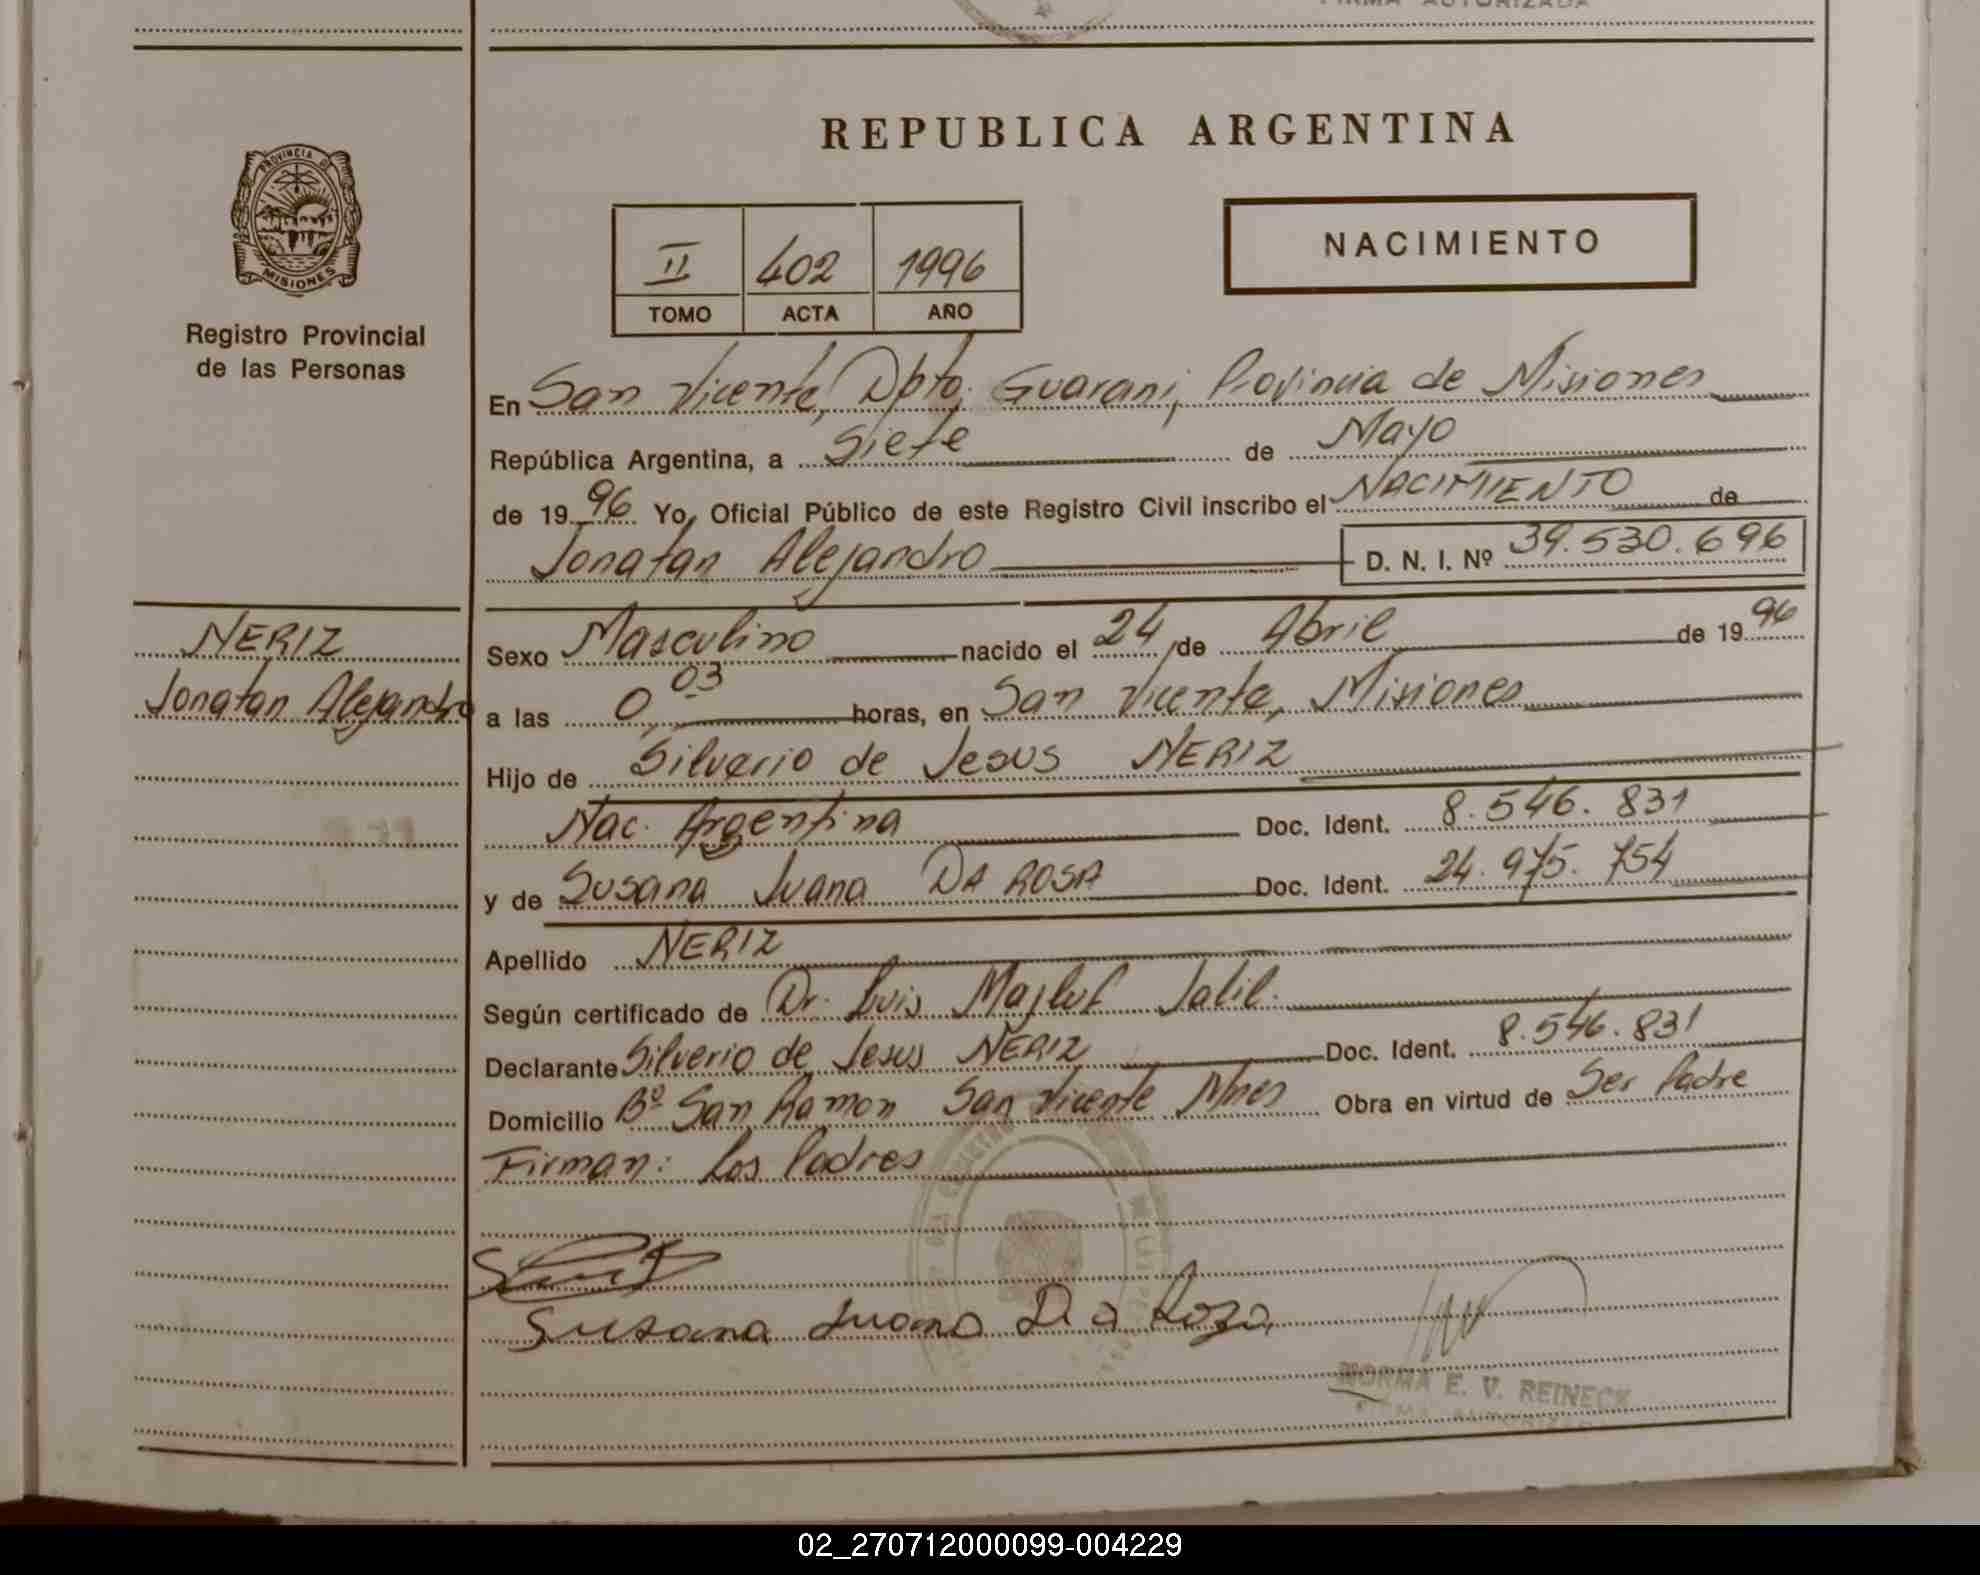 FIRMA AUTORIZADA
REPUBLICA ARGENTINA
PROVINCIA DE
MISIONES
Registro Provincial
de las Personas
II 402 1996
TOMO ACTA AÑO
NACIMIENTO
En San Vicente, Dpto. Guarani, Provincia de Misiones
República Argentina, a Siete de Mayo
de 1996 Yo, Oficial Público de este Registro Civil inscribo el NACIMIENTO de
Jonatan Alejandro D. N. I. Nº 39.530.696
NERIZ
Jonatan Alejandro
Sexo Masculino nacido el 24 de Abril de 1996
a las 0,03 horas, en San Vicente, Misiones
Hijo de Silverio de Jesus NERIZ
Nac. Argentina Doc. Ident. 8.546.831
y de Susana Juana DA ROSA Doc. Ident. 24.975.754
Apellido NERIZ
Según certificado de Dr. Luis Majluf Jalil.
Declarante Silverio de Jesus NERIZ Doc. Ident. 8.546.831
Domicilio Bº San Ramon San Vicente Mnes Obra en virtud de Ser Padre
Firman: Los Padres
Susana Juana Da Roza
NORMA E. V. REINECK
FIRMA AUTORIZADA
02_270712000099-004229